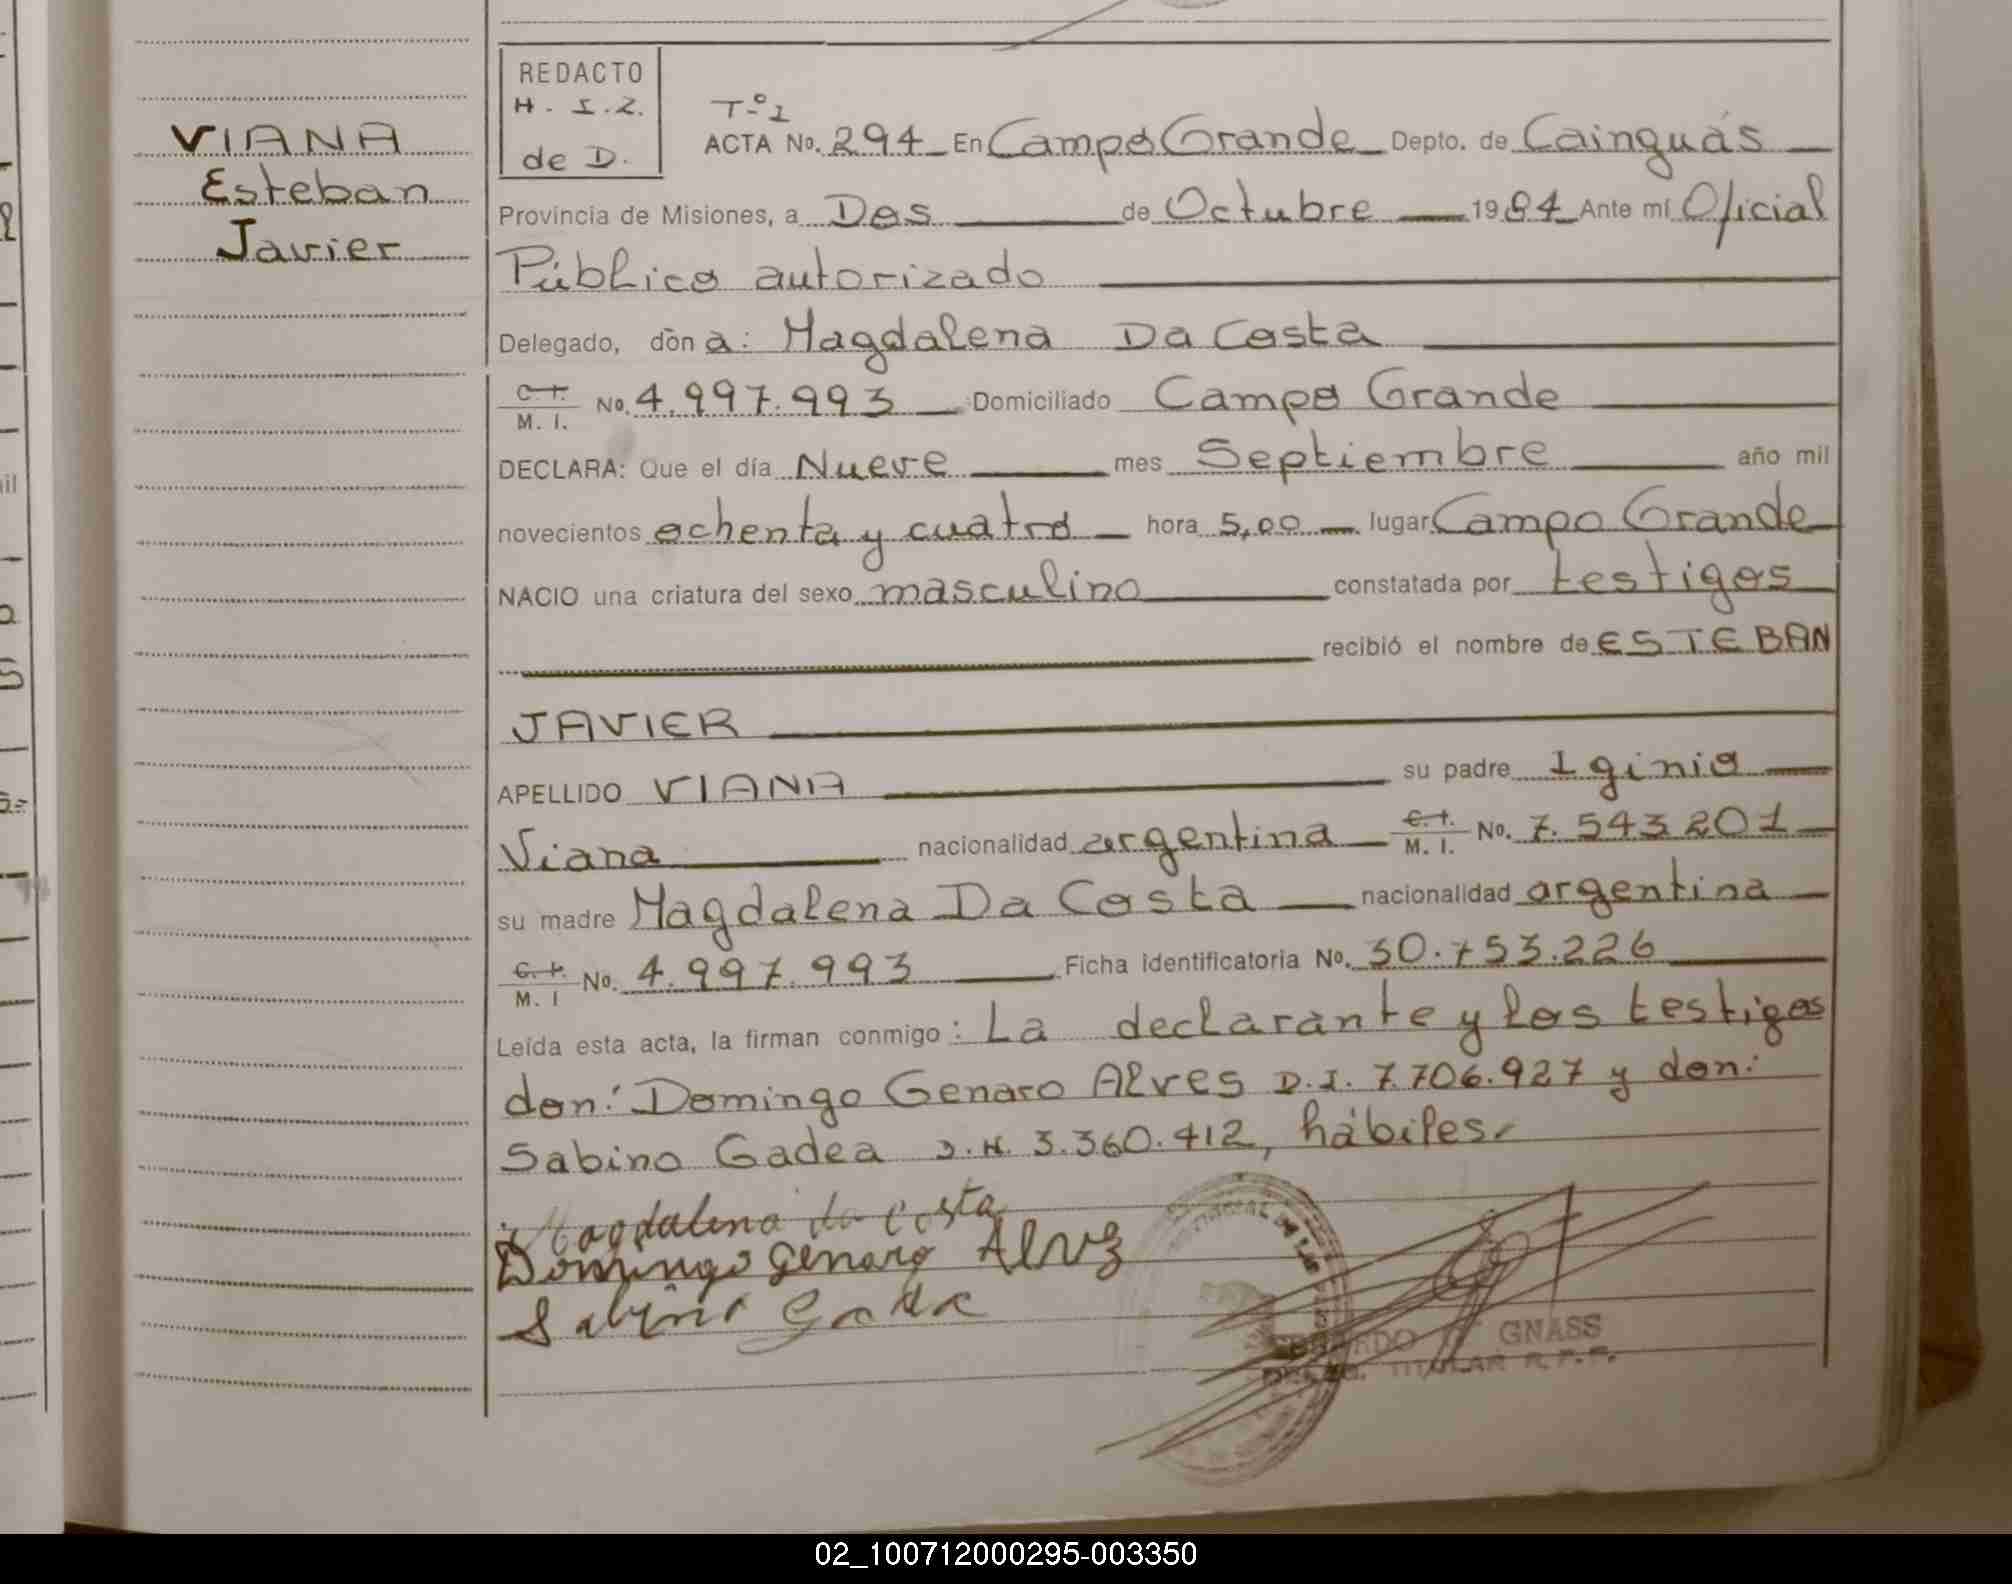 VIANA
Esteban
Javier
REDACTO
H. I. Z.
de D.
T-º1
ACTA No. 294 En Campo Grande Depto. de Cainguás
Provincia de Misiones, a Dos de Octubre 1984 Ante mí Oficial
Público autorizado
Delegado, don a: Magdalena Da Costa
C. I. M. I. No. 4.997.993 Domiciliado Campo Grande
DECLARA: Que el día Nueve mes Septiembre año mil
novecientos ochenta y cuatro hora 5,00 lugar Campo Grande
NACIO una criatura del sexo masculino constatada por testigos
recibió el nombre de ESTEBAN
JAVIER
APELLIDO VIANA su padre Iginio
Viana nacionalidad argentina C. I. M. I. No. 7.543201
su madre Magdalena Da Costa nacionalidad argentina
C. I. M. I No. 4.997.993 Ficha identificatoria No. 30.753.226
Leída esta acta, la firman conmigo: La declarante y los testigos
don: Domingo Genaro Alves D.I. 7.706.927 y don:
Sabino Gadea 3.360.412, hábiles
Magdalena da costa
Domingo genaro Alvz
GNASS
TITULAR R.P.P.
02_100712000295-003350